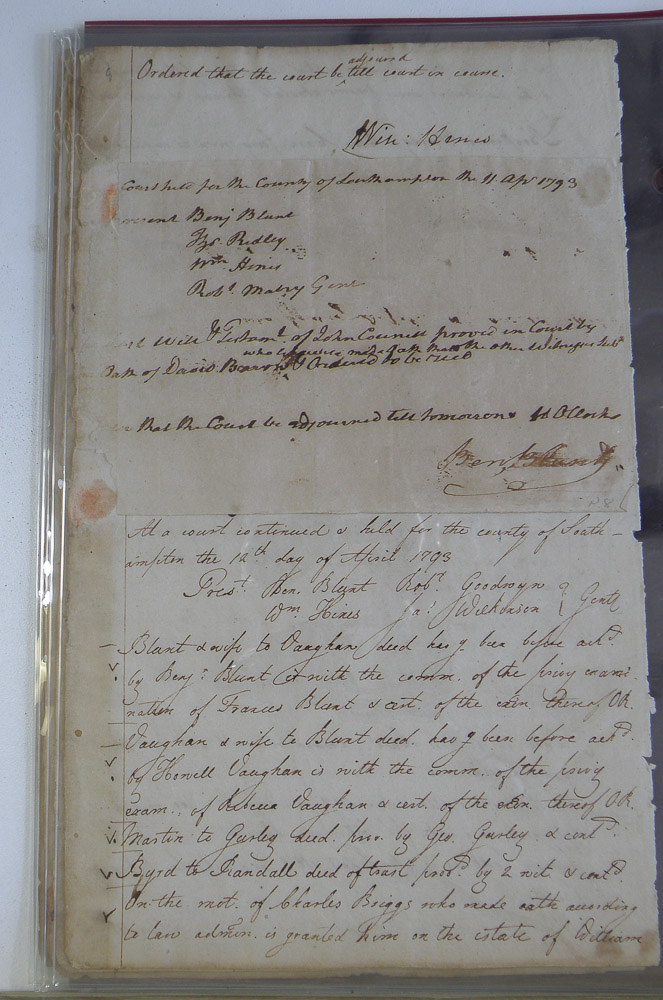 adjourned
Ordered that the court be till court in course.
Will: Hines
Court held for the County of Southampton the 11 Apr 1793
Present Benj Blunt
Ridley
Wm Hines
Robt. Mabry Gent
Will & Testamt. of John Council proved in Court by
who made oath that the other Witnesses Subd.
Oath of David & Ordered to be recd
that the Court be adjourned till tomorrow 10 OClock
Benj. Blunt
At a court continued & held for the county of South-
ampton the 12th day of April 1793
Prest. Ben. Blunt Robt. Goodwyn
Wm. Hines Jas. Wilkinson Gentl
Blunt & wife to Vaughan deed havg been before ackd.
by Benjn. Blunt is with the comm. of the privy exami-
nation of Frances Blunt & cert. of the exon. thereof OR.
Vaughan & wife to Blunt deed havg been before ackd.
by Howell Vaughan is with the comm. of the privy
exam. of Rebecca Vaughan & cert. of the exon. thereof OR.
Martin to Gurley deed prov. by Geo. Gurley & contd.
Byrd to Randall deed of trust provd. by 2 wit. & contd.
On the mot. of Charles Briggs who made oath according
to law admon. is granted him on the estate of William